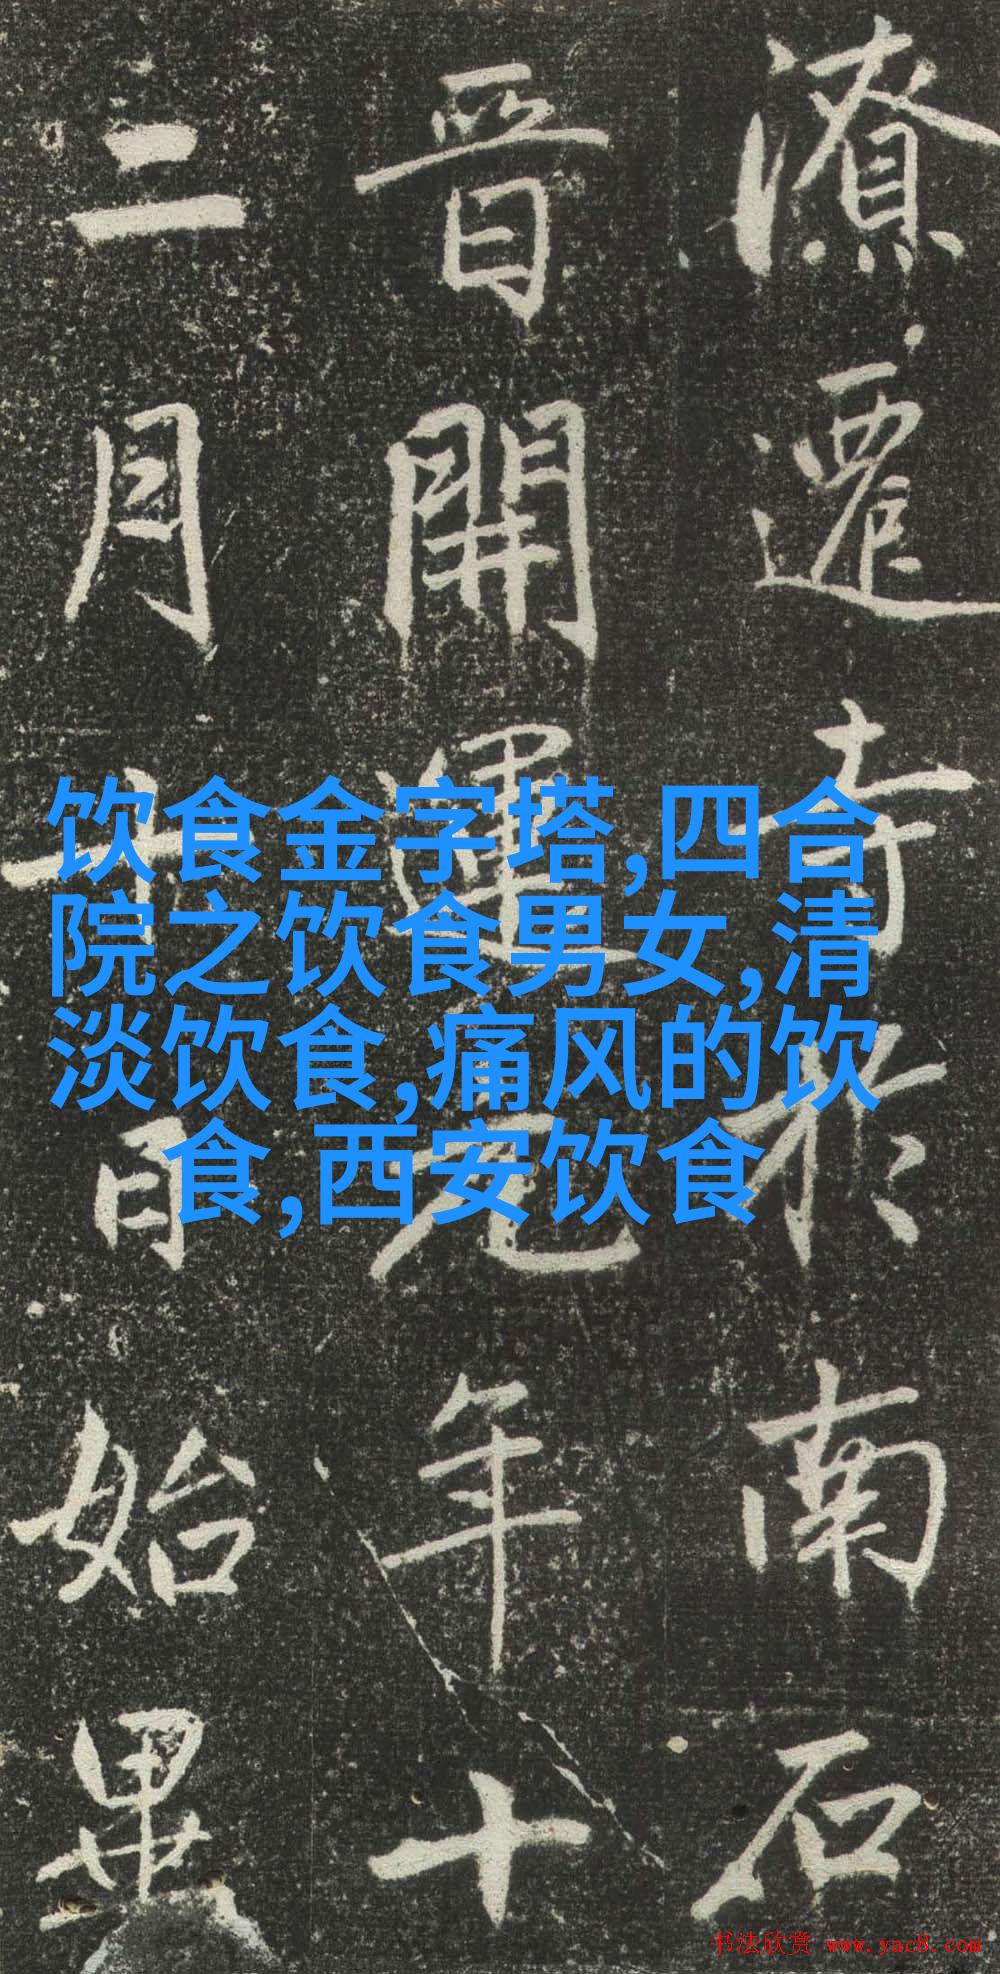 潦遷寺於南石
晉開運元年十
二月十日始畢
饮食金字塔,四合
院之饮食男女,清
淡饮食,痛风的饮
食,西安饮食
书法欣赏 www.yac8.com